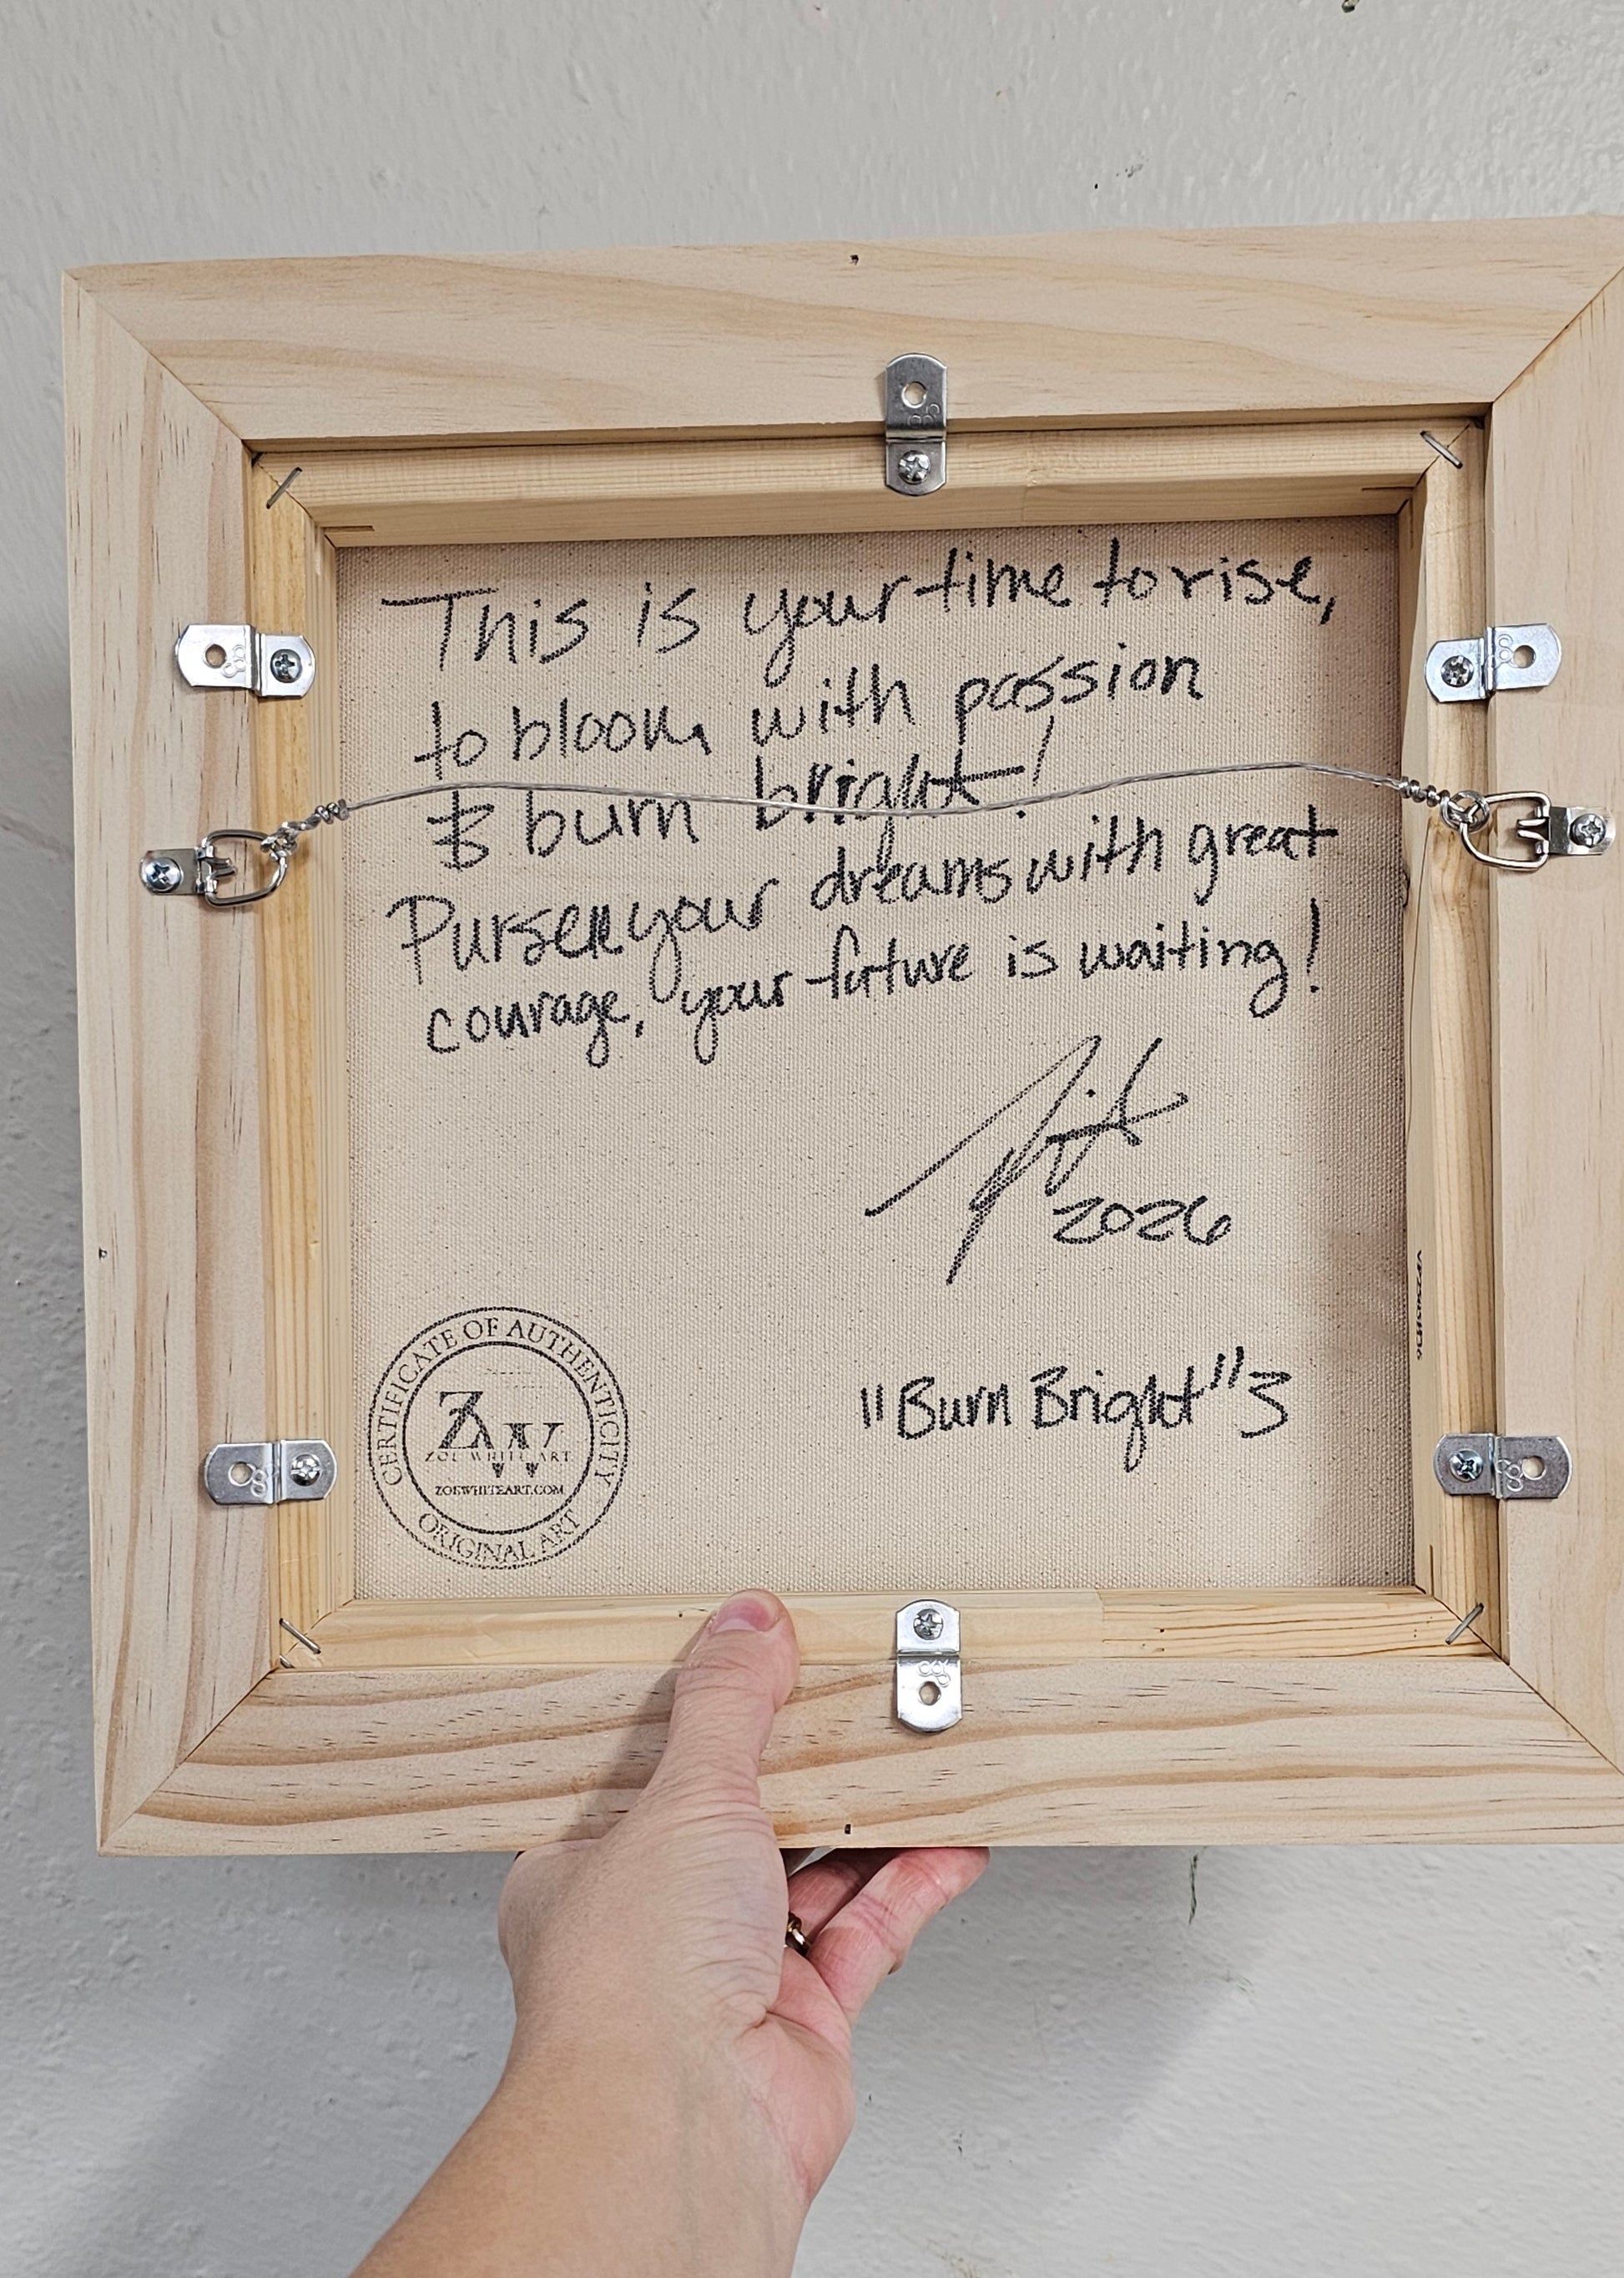 This is your time to rise,
to bloom with passion
& burn bright!
Pursue your dreams with great
courage, your future is waiting!
2026
"Burn Bright" 3
CERTIFICATE OF AUTHENTICITY
ZW
ZOE WHITE ART
ZOEWHITEART.COM
ORIGINAL ART